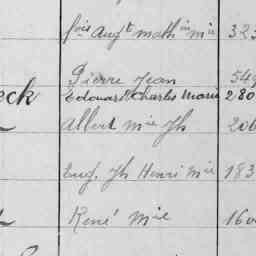 fois Aug^t Math^in M^ie 323
Pierre Jean 549
eck Edouard Charles Marie 280
Albert M^ie Jh 206
Eug. Jh Henri M^ie 183
René M^ie 160